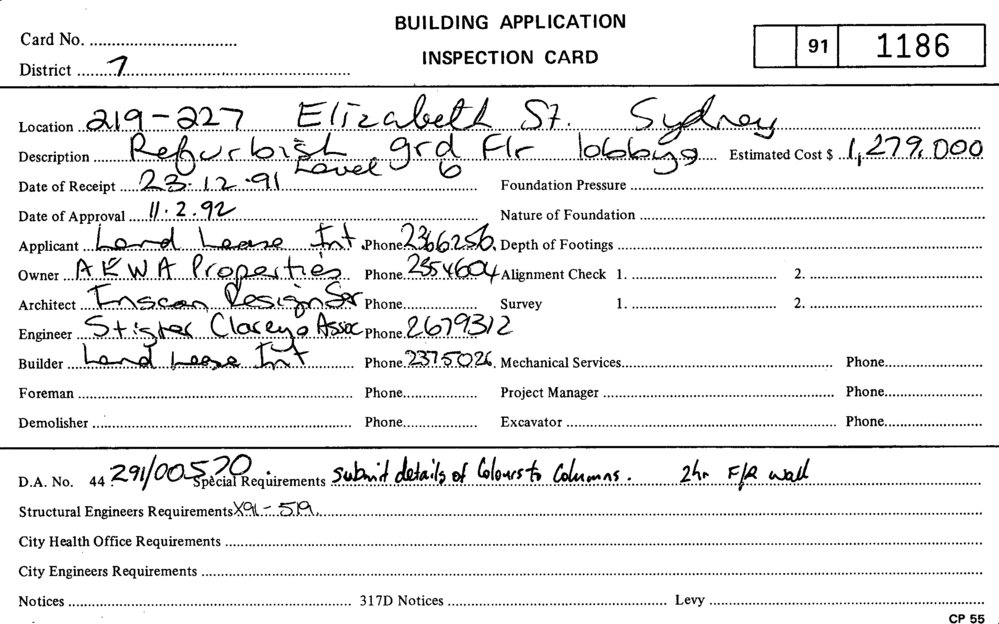 BUILDING APPLICATION
INSPECTION CARD
Card No.
District 7
91 1186
Location 219-227 Elizabeth St. Sydney
Description Refurbish grd Flr lobbys Estimated Cost $ 1,279,000
Level 6
Date of Receipt 23.12.91 Foundation Pressure
Date of Approval 11.2.92 Nature of Foundation
Applicant Lend Lease Int Phone 2366256 Depth of Footings
Owner A E W A Properties Phone 2354604 Alignment Check 1. 2.
Architect Design Phone Survey 1. 2.
Engineer Assoc Phone 2679312
Builder Lend Lease Int Phone 2375026 Mechanical Services Phone
Foreman Phone Project Manager Phone
Demolisher Phone Excavator Phone
D.A. No. 44 291/00520 Special Requirements Submit details of Colours to Columns. 2hr F/R wall
Structural Engineers Requirements X91-519
City Health Office Requirements
City Engineers Requirements
Notices 317D Notices Levy
CP 55